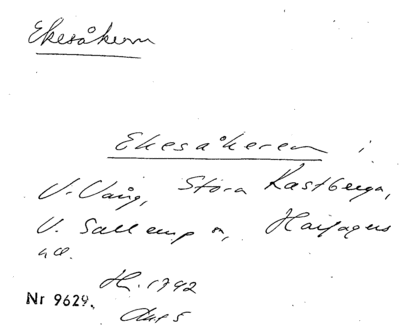 Ekesåkern
Ekesåkeren i
V. Vång, Stora Kastberga,
V. Sallerup s., Harjagers
hd.
H. 1792
Akt 5
Nr 9629.